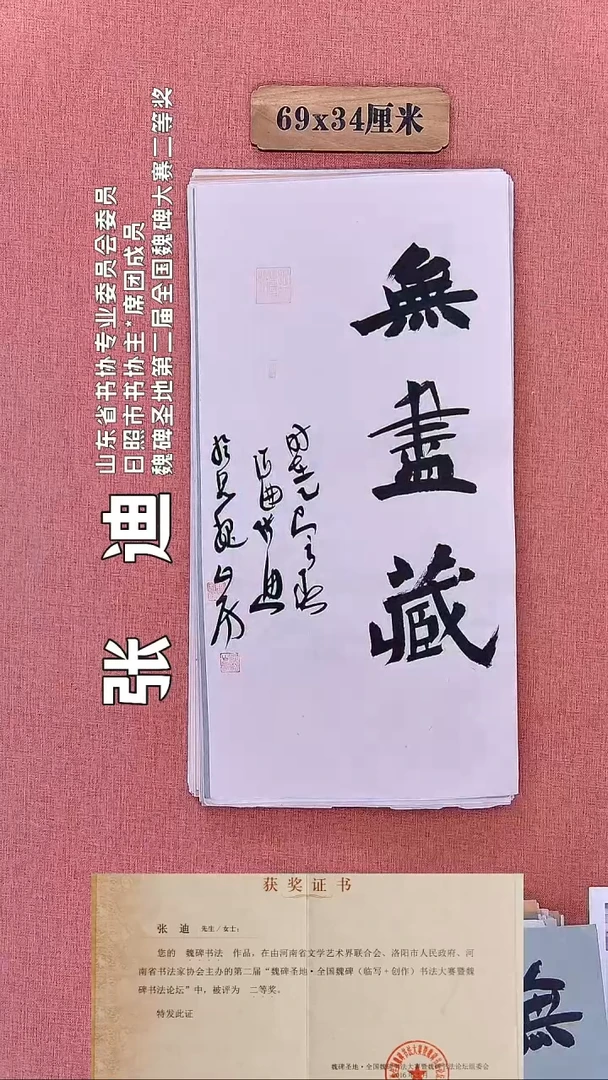 69x34厘米
無盡藏
张迪
山东省书协专业委员会委员
日照市书协主*席团成员
魏碑圣地第二届全国魏碑大赛二等奖
获奖证书
张 迪 先生/女士：
您的 魏碑书法 作品，在由河南省文学艺术界联合会、洛阳市人民政府、河
南省书法家协会主办的第二届“魏碑圣地·全国魏碑（临写+创作）书法大赛暨魏
碑书法论坛”中，被评为 二等奖。
特发此证
無